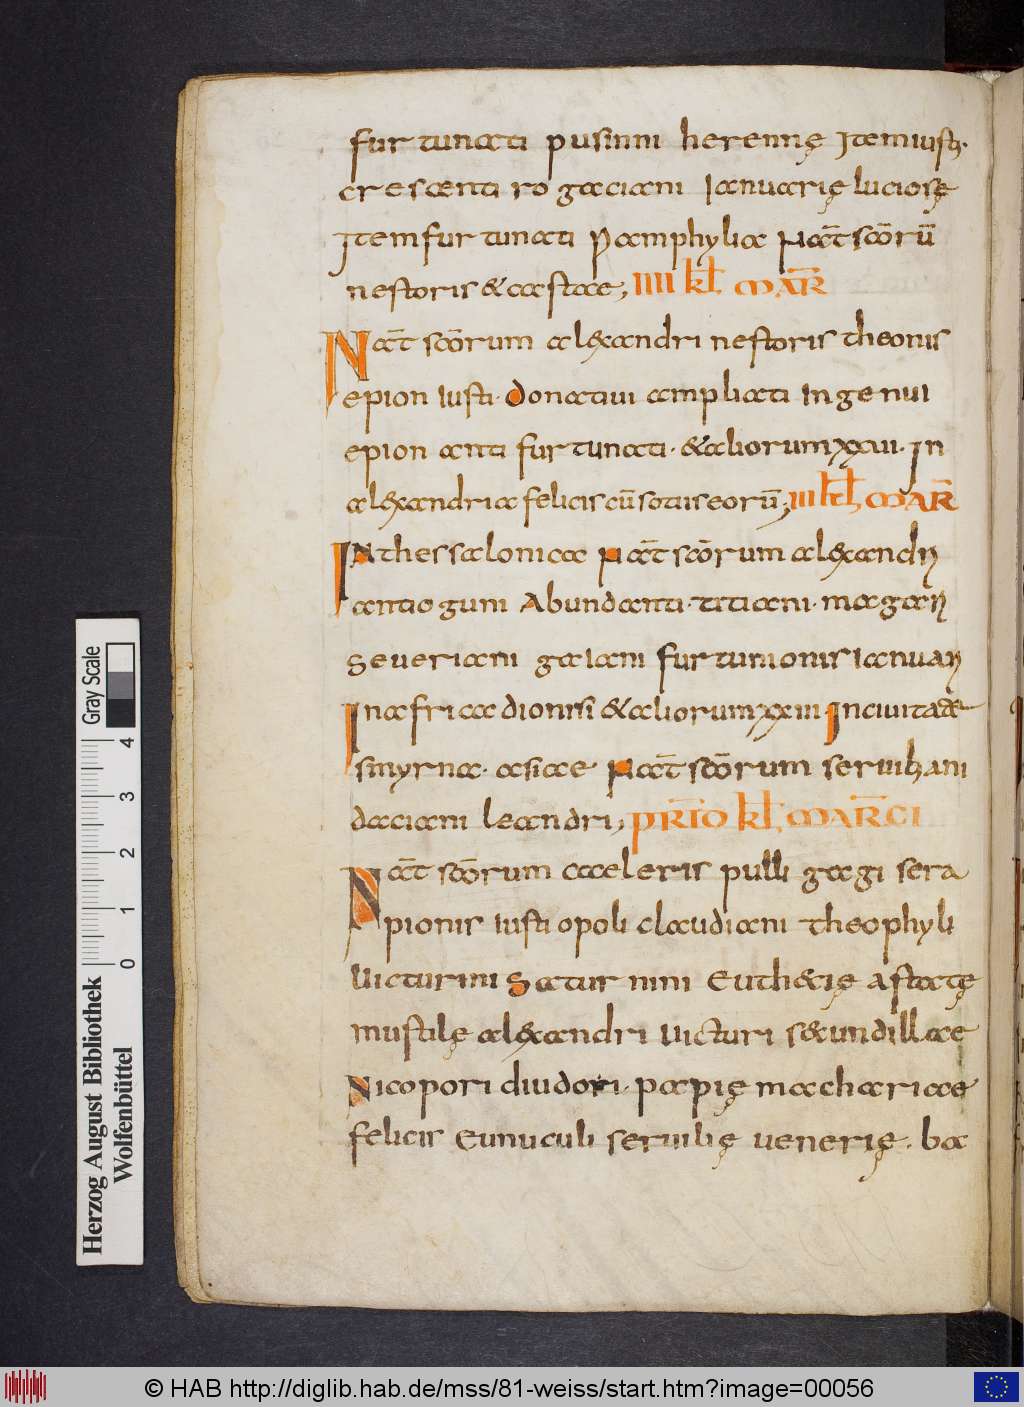 furtunati pusinni herennę Item iusti·
crescenti rogaciani Ianuarię luciosę
Item furtunati Pamphylia Nat̄ scōrū
nestoris & castae; IIII kl̄ MAR̄
Nat̄ scōrum alexandri nestoris theonis
epion iusti· donatiui ampliati Ingenui
epion anti furtunati· & aliorum xxvii· In
alexandria felicis cū sotiis eorū; III kl̄ MAR̄
IN thessalonica Nat̄ scōrum alexandri
antiogum Abundanti· titiani· magari
Seueriani gaiani furtunionis Ianuari
In africa dionisi & aliorum xxiiii In ciuitate
smyrna· asiae Nat̄ scōrum seruihani
daciani leandri; PR̄IO kl̄ MAR̄CI
Nat̄ scōrum caceleris pulli gagi sera
pionis iusti opoli claudiani theophyli
Uicturini Saturnini Euth&ię Astatę
mustilę alexandri Uicturi s&undillae
Nicopori diuidori· papię machariae
felicis Eunuculi seruilię uenerię· ba
Gray Scale
4
3
2
1
0
Herzog August Bibliothek
Wolfenbüttel
© HAB http://diglib.hab.de/mss/81-weiss/start.htm?image=00056